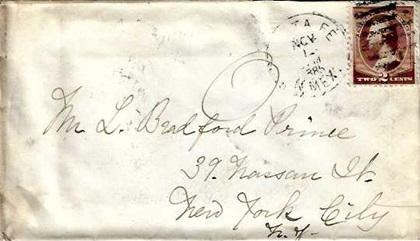 TA FE
NOV
1885
MEX.
TWO 2 CENTS
Mr L. Bradford Prince
39. Nassau St.
New York City
N.Y.